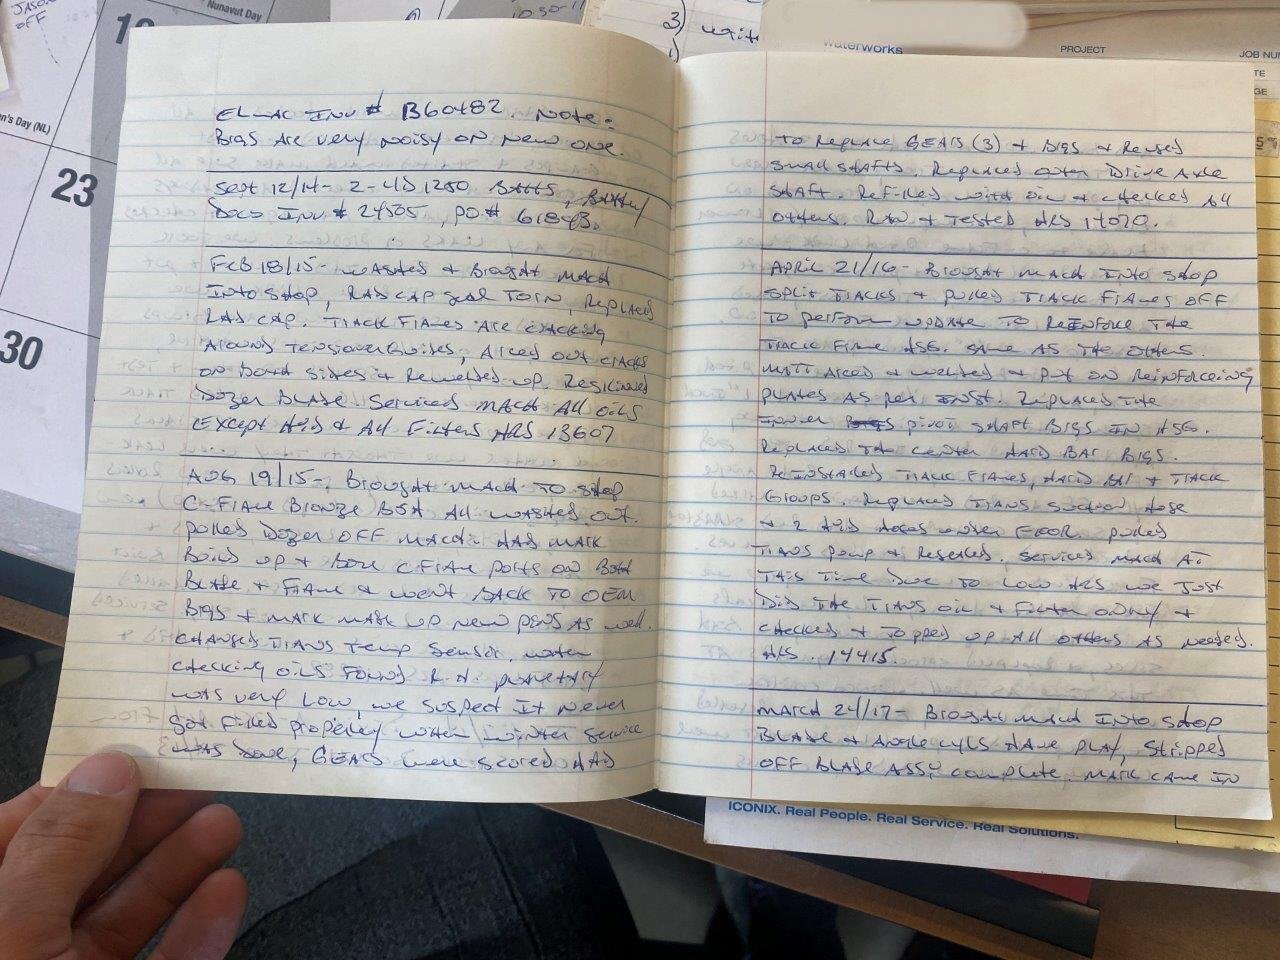 JASON
OFF
Nunavut Day
10:30-11
3) write
waterworks
PROJECT
JOB NUM
n's Day (NL)
23
30
EL-AC INV # B60482. Note:
Brgs Are very noisy on new one.
Sept 12/14 - 2 - 4D 1250 BATTS, Battery
Docs Inv. # 24505, PO# 618493.
FEB 18/15 - washed & Brought MACH
Into shop, RAD CAP seal Torn, Replaced
RAD CAP. TRACK Frames Are cracking
Around Tensioner Guides, Arced out cracks
on Both sides & Rewelded up. Reskinned
Dozer BLADE. Serviced MACH All oils
Except Hyd & All Filters HRS 13607
AUG 19/15 - Brought MACH TO shop
C-Frame Bronze BSH All washed out.
pulled Dozer OFF MACH & HAD MARK
Build up + Bore C Frame ports on Both
BLADE + FRAME & went BACK TO OEM
Brgs + MARK MADE up new pins AS well.
changed TRANS Temp Sensor. when
checking oils Found R.H. planetary
was very low, we suspect It never
got Filled properly when winter service
was Done, GEARS were scored HAD
TO Replace GEARS (3) + Brgs & Reused
small shafts. Replaced outer Drive Axle
SHAFT. Refilled with oil & checked All
others. Ran & Tested HRS 14020.
APRIL 21/16 - Brought MACH INTO shop
split TRACKS & pulled TRACK FRAMES OFF
TO perform update TO REINFORCE The
TRACK Frame ASG. SAME AS The OTHERS.
MATT Arced & welded & put on Reinforceing
plates As per INST. Replaced The
INNER pivot SHAFT Brgs IN ASG.
Replaced The center HARD BAR Brgs.
Reinstalled TRACK Frames, HARD BAR + TRACK
Groups. Replaced TRANS suction Hose
+ 2 Hyd Hoses under FLOOR. pulled
TRANS pump & Resealed. Serviced MACH AT
This Time Due To Low HRS we Just
Did The TRANS oil & Filter only &
checked & Topped up All others As needed.
HRS. 14415.
MARCH 24/17 - Brought MACH INTO shop
BLADE & Angle cyls HAVE PLAY, stripped
OFF BLADE ASSY complete, MARK CAME IN
ICONIX. Real People. Real Service. Real Solutions.